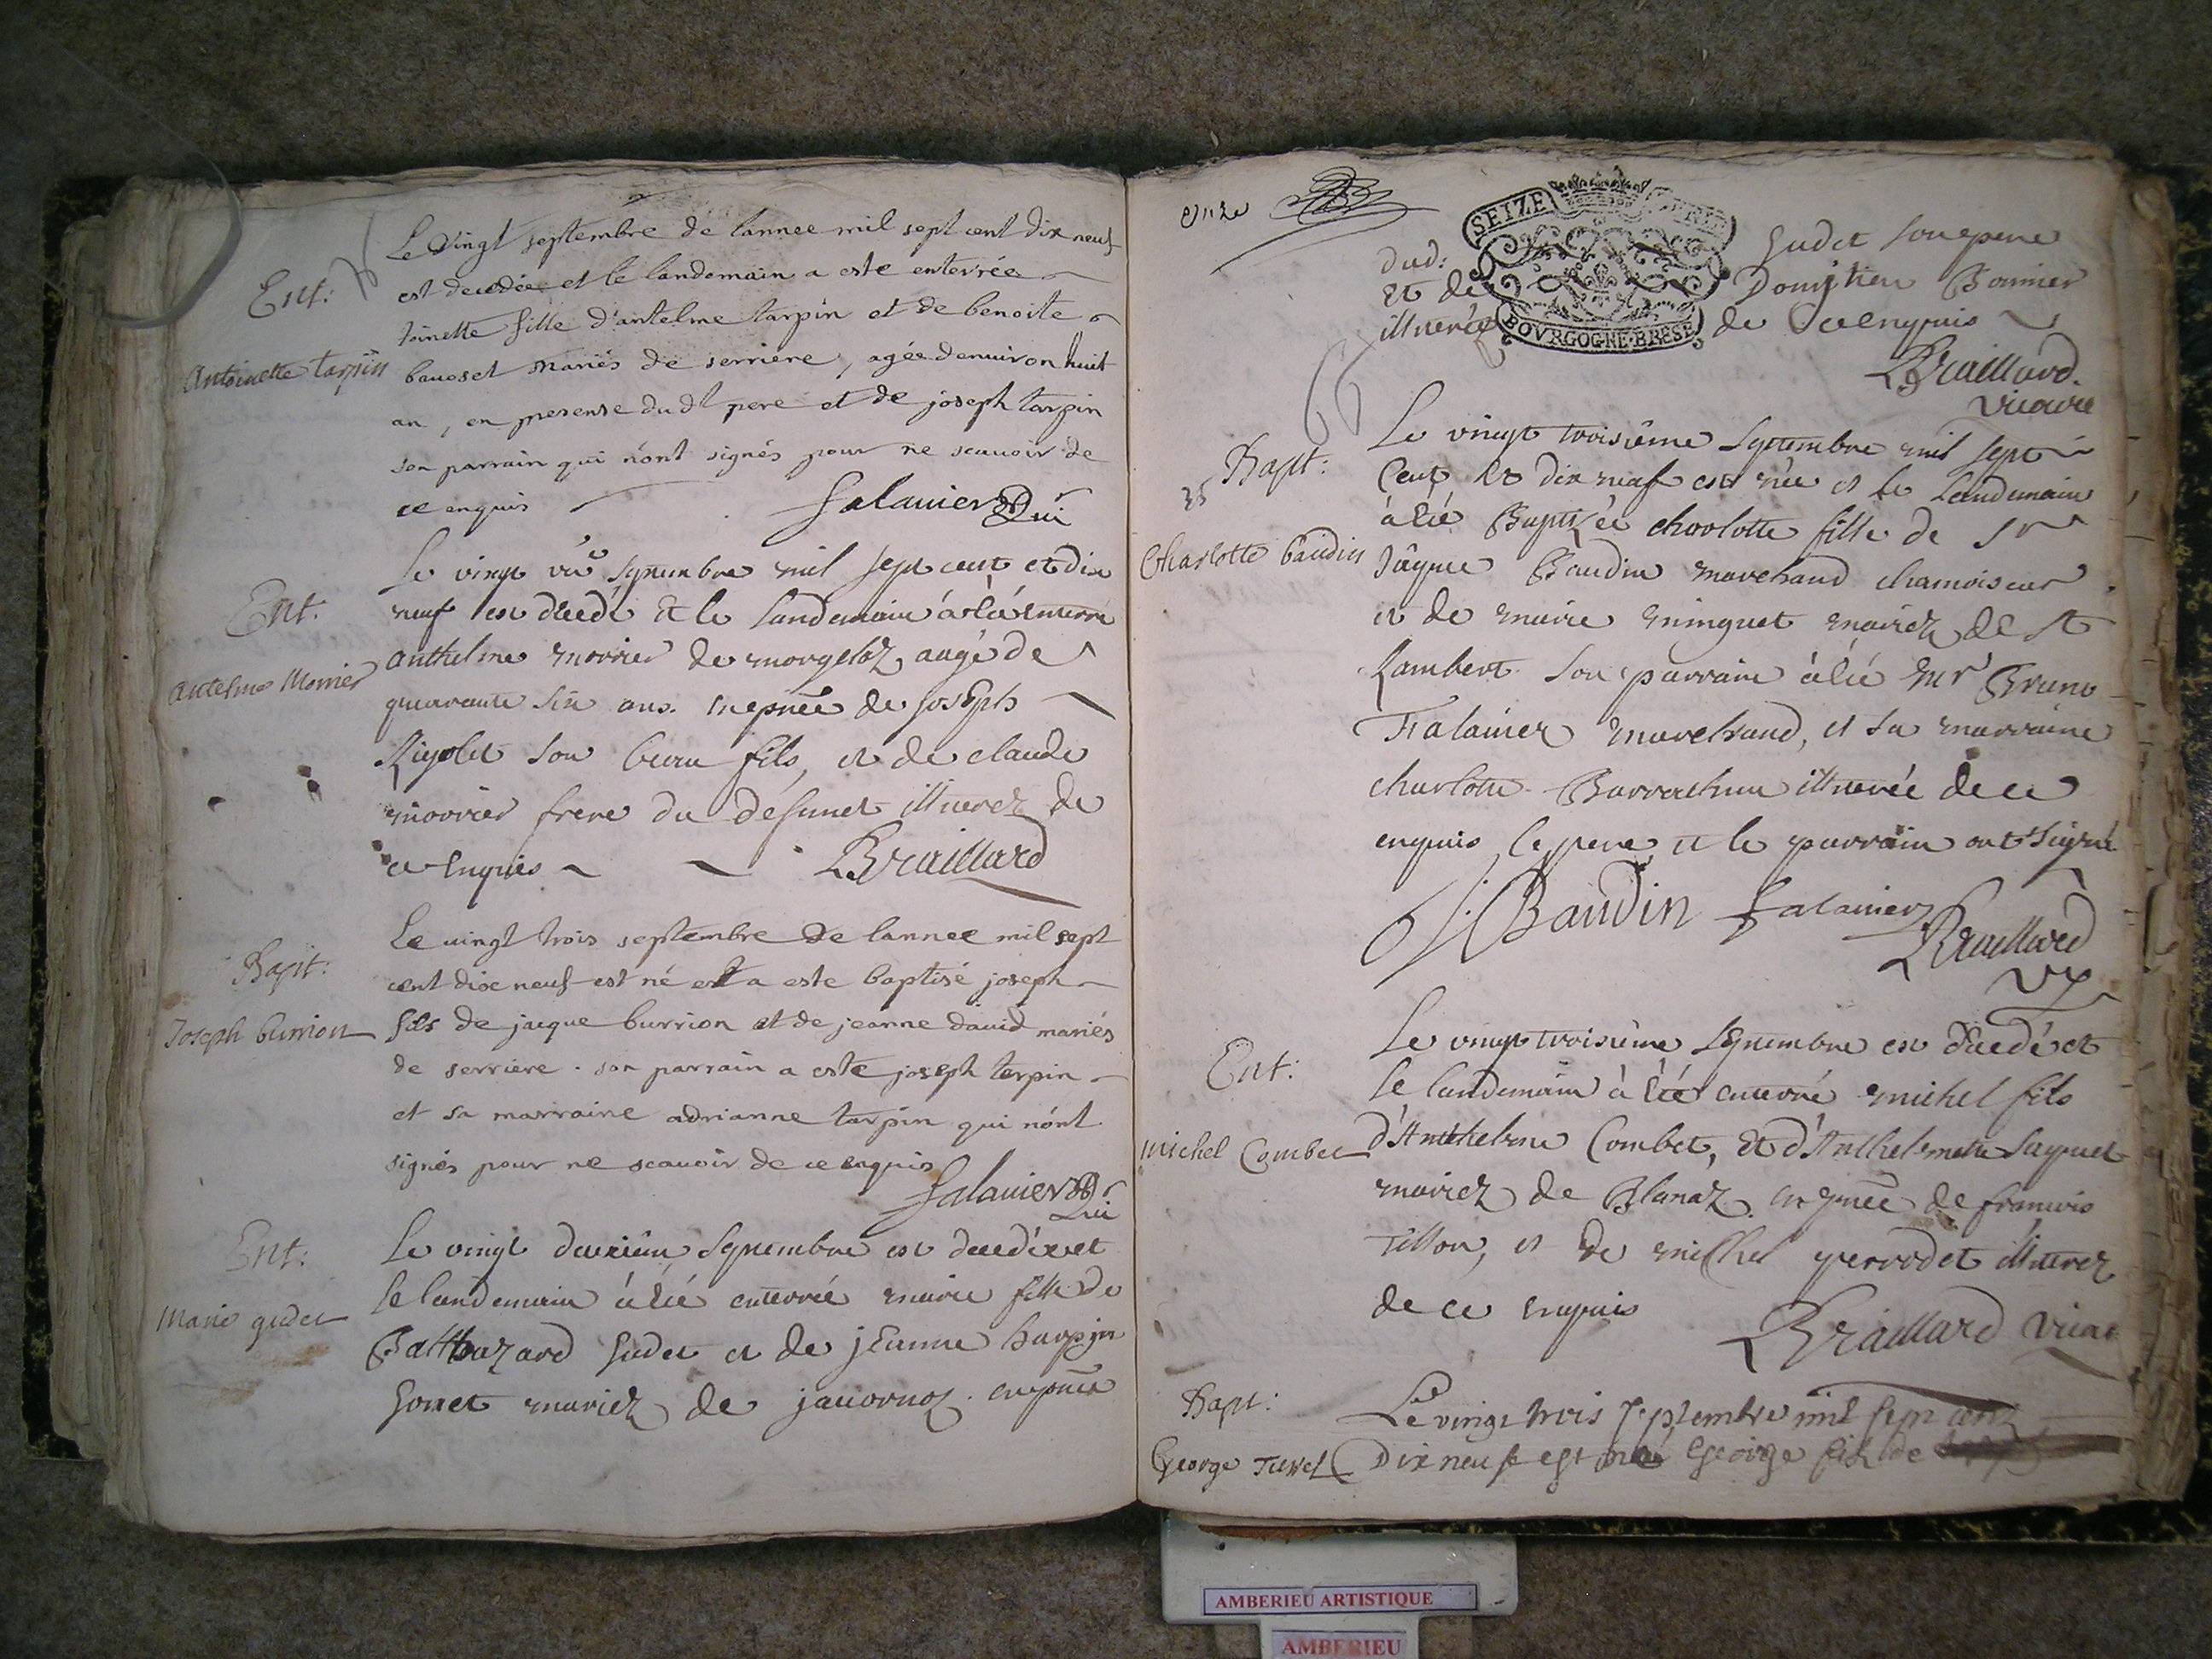 Ent:
Antoinette tarpin
Le vingt septembre de lannee mil sept cent dix neuf
est decedée et le landemain a este enterrée
toinette fille d'antelme tarpin et de benoite
baudet mariés de serriere, agée denuiron huit
an, en presense du dt pere et de joseph tarpin
son parrain qui n'ont signés pour ne scauoir de
ce enquis
falauier
Ent.
Antelme Morrier
Le vingt septembre mil sept cent et dix
neuf est decedé et le landemain à été enterré
anthelme morrier de morgeloz augé de
quarante six ans. en pnce de joseph
Rigolet son beau fils, et de claude
morrier frere du defunct illiterez de
ce enquis
Braillard
Bapt:
Joseph burrion
Le uingt trois septembre de lannee mil sept
cent dix neuf est né et a este baptisé joseph
fils de jacque burrion et de jeanne dauid mariés
de serriere. son parrain a este joseph terpin
et sa marraine adrianne tarpin qui n'ont
signés pour ne scauoir de ce enquis
falauier
Ent:
Marie gudet
Le vingt deuxieme septembre est decedée et
le landemain à été enterrée marie fille de
Balthazard Gudet et de jeanne harpin
Gonet mariez de jauornoz. en pnce
onze
SEIZE
BOVRGOGNE·BRESE
dud: Gudet son pere
et de Domitien Bonnier
illiterez de ce enquis
Braillard.
vicaire
35
Bapt:
Charlotte baudin
Le vingt troisième septembre mil sept
cent et dix neuf est née et le landemain
à été Baptizée charlotte fille de Sr
Jâque Baudin marchand chamoiseur
et de marie minguet mariez de St
Rambert. Son parrain à été Mr Bruno
Falauier marchand, et sa marraine
charlotte Barrachin illiterée de ce
enquis le pere et le parrain ont signé
J: Baudin falauier
Braillard
Ent:
michel Combet
Le vingt troisième septembre est decedé et
le landemain à été enterré michel fils
d'Anthelme Combet, et d'Anthelmette Saquet
mariez de Blanaz. en pnce de francois
Tillon, et de michel perrodet illiterez
de ce enquis
Braillard
Bapt:
George
Le vingt trois septembre mil sept cent
Dix neuf est né George fils de
AMBERIEU ARTISTIQUE
AMBERIEU